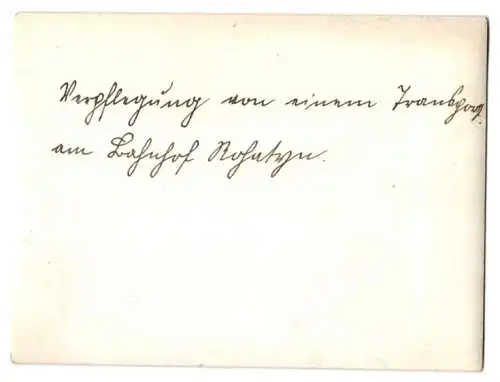 Verpflegung von einem Transport
am Bahnhof Rohatyn.